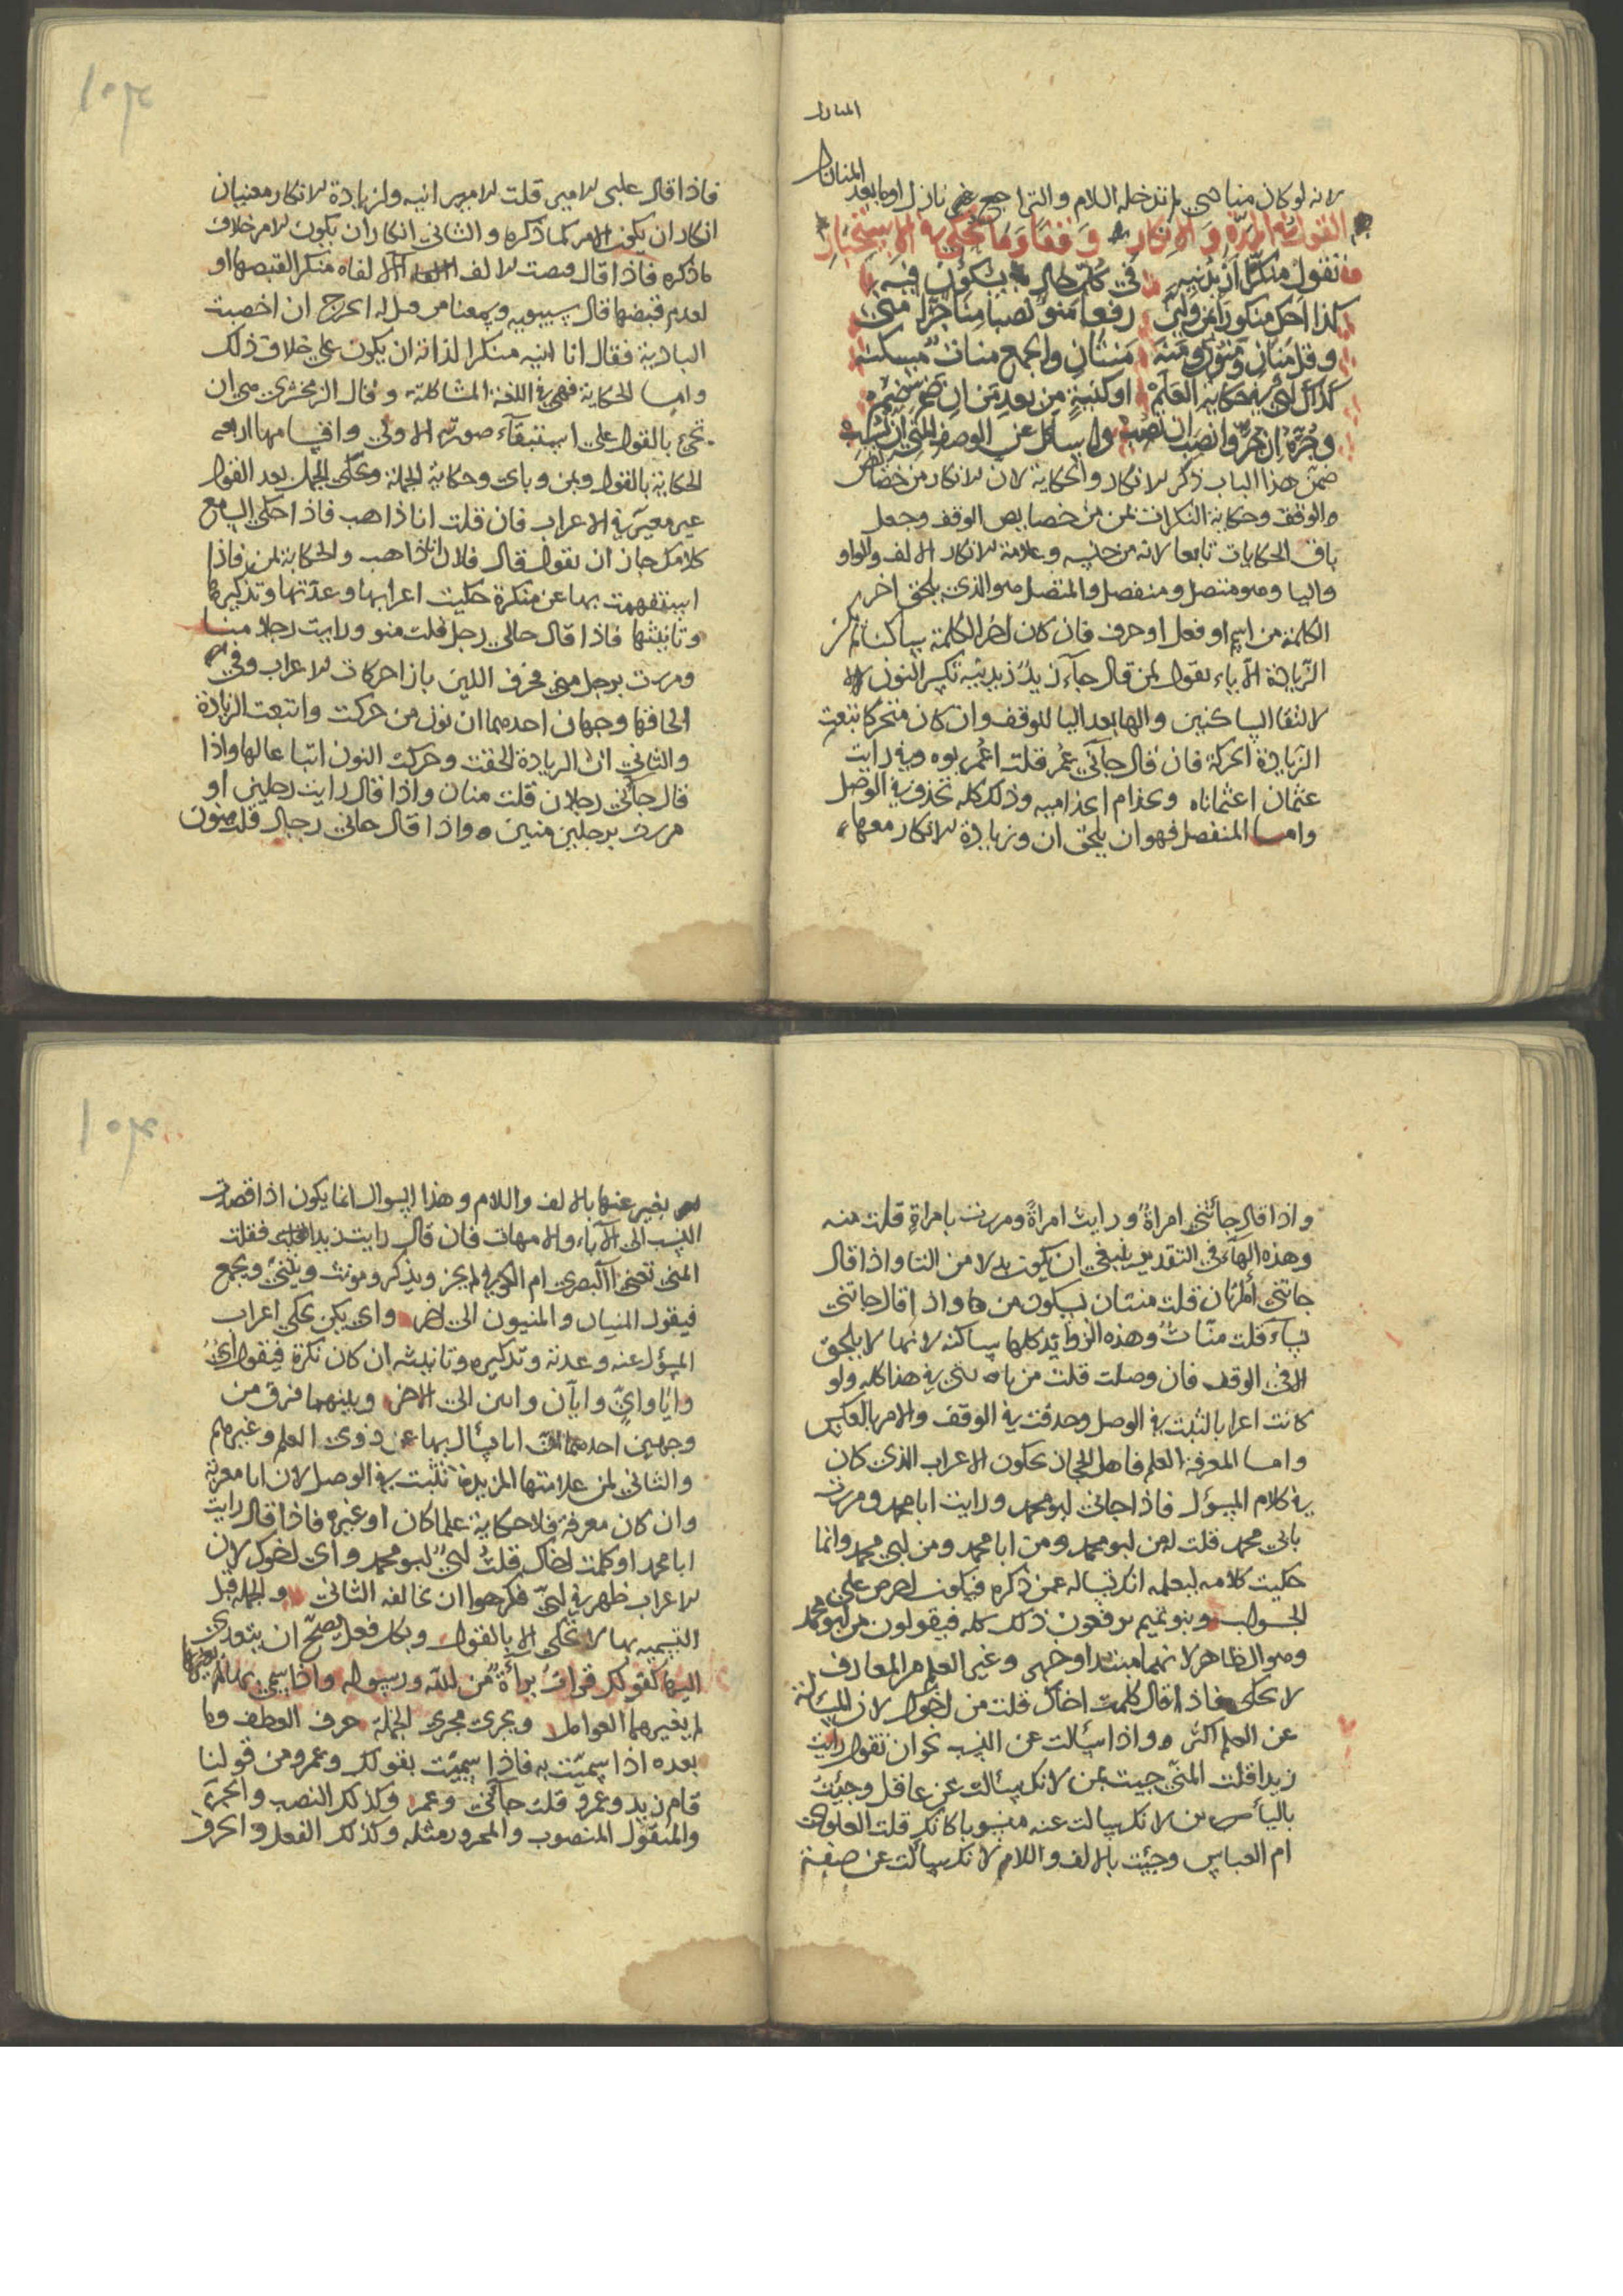 المنازل
المنازل
لانه لو كان مناهي لم تدخله اللام والتراجع غير نازل اوما بعد
القول في المدة والانكار وقفا وما يحكى في الاستخبار
تقول منكرا ازيدنيه في كل حال يكون فيه
كذا احك منكورا بمن ولين رفعا منو نصبا منا جرا مني
وقل منان ومنون ومنه منتان والجمع منات مسكنه
كذاك اي حكاية العلم او كنية من بعد من ان ضم ضم
وجره ان جر وانصب ان نصب واسال عن الوصف المني ان
ضمن هذا الباب ذكر الانكار والحكاية لان الانكار من خصائص
الوقف وحكاية النكرات بمن من خصايص الوقف وجعل
باقي الحكايات تابعا لانه من جنسه وعلامة الانكار الالف والواو
واليا وهو متصل ومنفصل والمتصل هو الذي يلحق اخر
الكلمة من اسم او فعل او حرف فان كان اخر الكلمة ساكنا لم تكن
الزيادة الا ياء تقول لمن قال جاء زيد ازيدنيه تكسر النون
لالتقا الساكنين والها بعد اليا للوقف وان كان متحركا تبعت
الزيادة الحركة فان قال جآني عمر قلت اعمروه وفي رايت
عثمان اعثماناه وبحذام احذاميه وذلك كله تحذف في الوصل
واما المنفصل فهو ان يلحق ان وزيادة الانكار معها
فاذا قال علي الامير قلت الامير انيه ولزيادة الانكار معنيان
انكار ان يكون الامر كما ذكره والثاني انكار ان يكون الامر خلاف
ما ذكره فاذا قال قبضت الالف الالفاه منكرا لقبضها او
لعدم قبضها قال سيبويه وسمعنا من قيل له اتخرج ان اخصبت
البادية فقال انا انيه منكرا لذاته ان يكون على خلاف ذلك
واما الحكاية فهي في اللغة المشاكلة وقال الزمخشري هي ان
تجيء بالقول على استبقاء صورته الاولى واقسامها اربعة
الحكاية بالقول وبمن وباي وحكاية الجملة وتحكى الجمل بعد القول
غير مغيرة الاعراب فان قلت انا ذاهب فاذا حكى السامع
كلامك جاز ان يقول قال فلان انا ذاهب والحكاية بمن فاذا
استفهمت بها عن منكرة حكيت اعرابها وعدتها وتذكيرها
وتانيثها فاذا قال جاني رجل قلت منو ورايت رجلا منا
ومررت برجل مني فحرف اللين بازا حركات الاعراب وفي
الحاقها وجهان احدهما ان نون من حركت واتبعت الزيادة
والثاني ان الزيادة لحقت وحركت النون اتباعا لها واذا
قال جآني رجلان قلت منان واذا قال رايت رجلين او
مررت برجلين منين واذا قال جاني رجال قلت منون
واذا قال جائتني امراة ورايت امراة ومررت بامراة قلت منه
وهذه الهآء في التقدير ينبغي ان يكون بدلا من التا واذا قال
جائتني امراتان قلت منتان بسكون من ها واذا قال جاتني
نساء قلت منات وهذه الزوائد كلها ساكنة لانها لا يلحق
الا في الوقف فان وصلت قلت من يا في هذا كله ولو
كانت اعرابا لثبت في الوصل وحذفت في الوقف والامر بالعكس
واما المعرفة العلم فاهل الحجاز يحكون الاعراب الذي كان
في كلام المسؤل فاذا جاني ابو محمد ورايت ابا محمد ومررت
بابي محمد قلت له من ابو محمد ومن ابا محمد ومن ابي محمد وانما
حكيت كلامه ليعلم انك تساله عمن ذكره فيكون احرص على
الجواب وبنو تميم يرفعون ذلك كله فيقولون من ابو محمد
وهو الظاهر لانهما مبتدا وخبر وغير العلم من المعارف
لا تحكى فاذا قال كلمت اخاك قلت من اخوك لان المسالة
عن العلم اكثر واذا سألت عن النسب نحو ان تقول رايت
زيدا قلت المني جيت بمن لانك سألت عن عاقل وجئت
باليا لانك سالت عنه منسوبا كانك قلت العلوي
ام العباسي وجيئت بالالف واللام لانك سالت عن صفة
يغير عنها بالالف واللام وهذا السوال انما يكون اذا قصدت
النسب الى الآباء والامهات فان قال رايت زيدا فقلت
المني تعني االبصري ام الكوفي لم يجز ويذكر ويونث ويثنى ويجمع
فيقول المنيان والمنيون الى اخره واي يكن يحكى اعراب
المسؤل عنه وعدته وتذكيره وتانيثه ان كان نكرة فيقول اي
وايا واي وايان وايين الى الاخر وبينهما فرق من
وجهين احدهما ان ايا يسأل بها عن ذوي العلم وغيرهم
والثاني ان علامتها المزيدة تثبت في الوصل لان ايا معربة
وان كان معرفة فلا حكاية علما كان او غيره فاذا قال رايت
ابا محمد او كلمت اخاك قلت اي ابو محمد واي اخوك لان
الاعراب ظهر في اي فكرهوا ان يخالفه الثاني والجملة قبل
التسمية بها لا تحكى الا بالقول وبكل فعل يصح ان يتعدى
اليها كقولك قرات براءة من الله ورسوله واذا سمي بها لم يغيرها
لم يغيرهما العوامل ويجري مجرى الجملة حرف العطف وما
بعده اذا سميت به فاذا سميت بقولك وعمرو من قولنا
قام زيد وعمرو قلت جآني وعمرو وكذلك النصب والجر
والمنقول المنصوب والمجرور مثله وكذلك الفعل والحرف